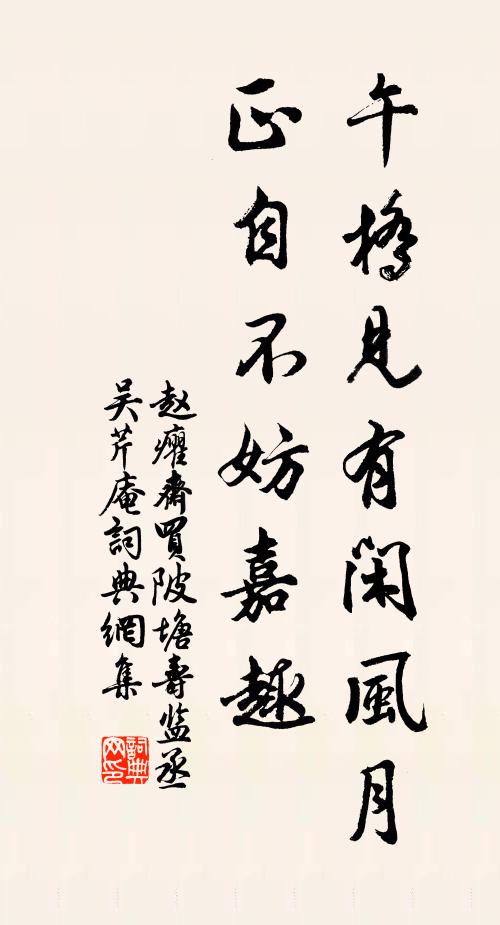 午橋見有閑風月
正自不妨嘉趣
赵癯齋買陂塘壽监丞
吴芹庵詞典網集
詞典网印